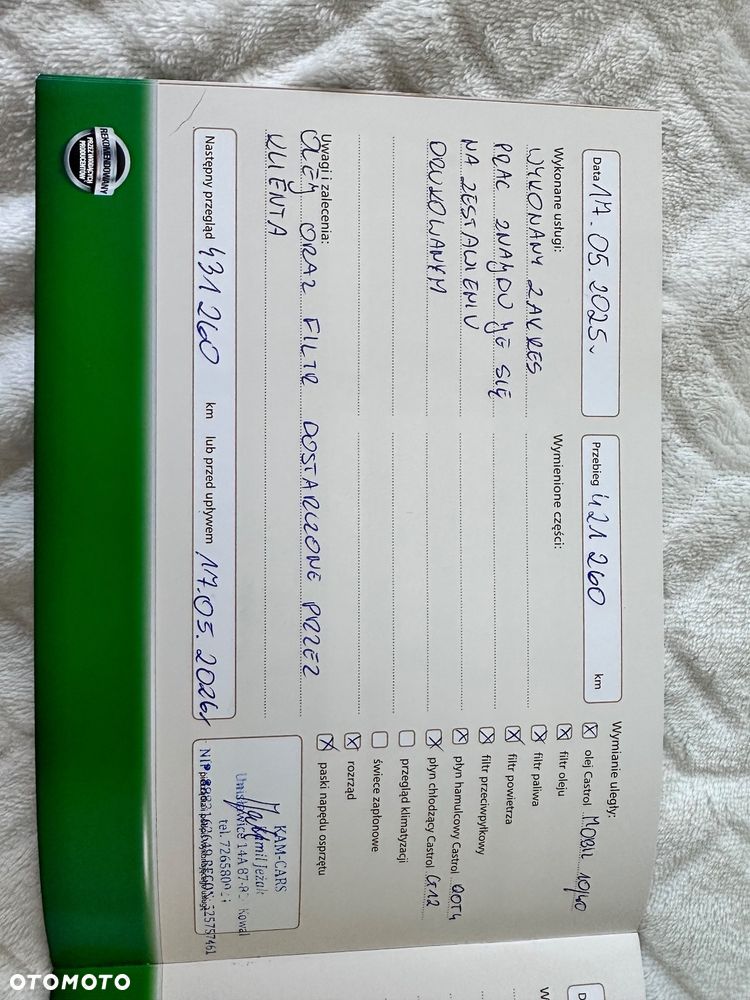 Data 17.05.2025r
Przebieg 421 260 km
Wykonane usługi:
WYKONANY ZAKRES
PRAC ZNAJDUJE SIĘ
NA ZESTAWIENIU
DRUKOWANYM
Wymienione części:
Uwagi i zalecenia:
OLEJ ORAZ FILTR DOSTARCZONE PRZEZ
KLIENTA
Następny przegląd 431 260 km lub przed upływem 17.05.2026r
Wymianie uległy:
olej Castrol MOBIL 10/40
filtr oleju
filtr paliwa
filtr powietrza
filtr przeciwpyłkowy
płyn hamulcowy Castrol DOT4
płyn chłodzący Castrol G12
przegląd klimatyzacji
świece zapłonowe
rozrząd
paski napędu osprzętu
KAM-CARS
Kamil Jeżak
14A 87-8 Kowal
tel. 7265800
NIP
REKOMENDOWANY
PRZEZ WIODĄCYCH
PRODUCENTÓW
OTOMOTO